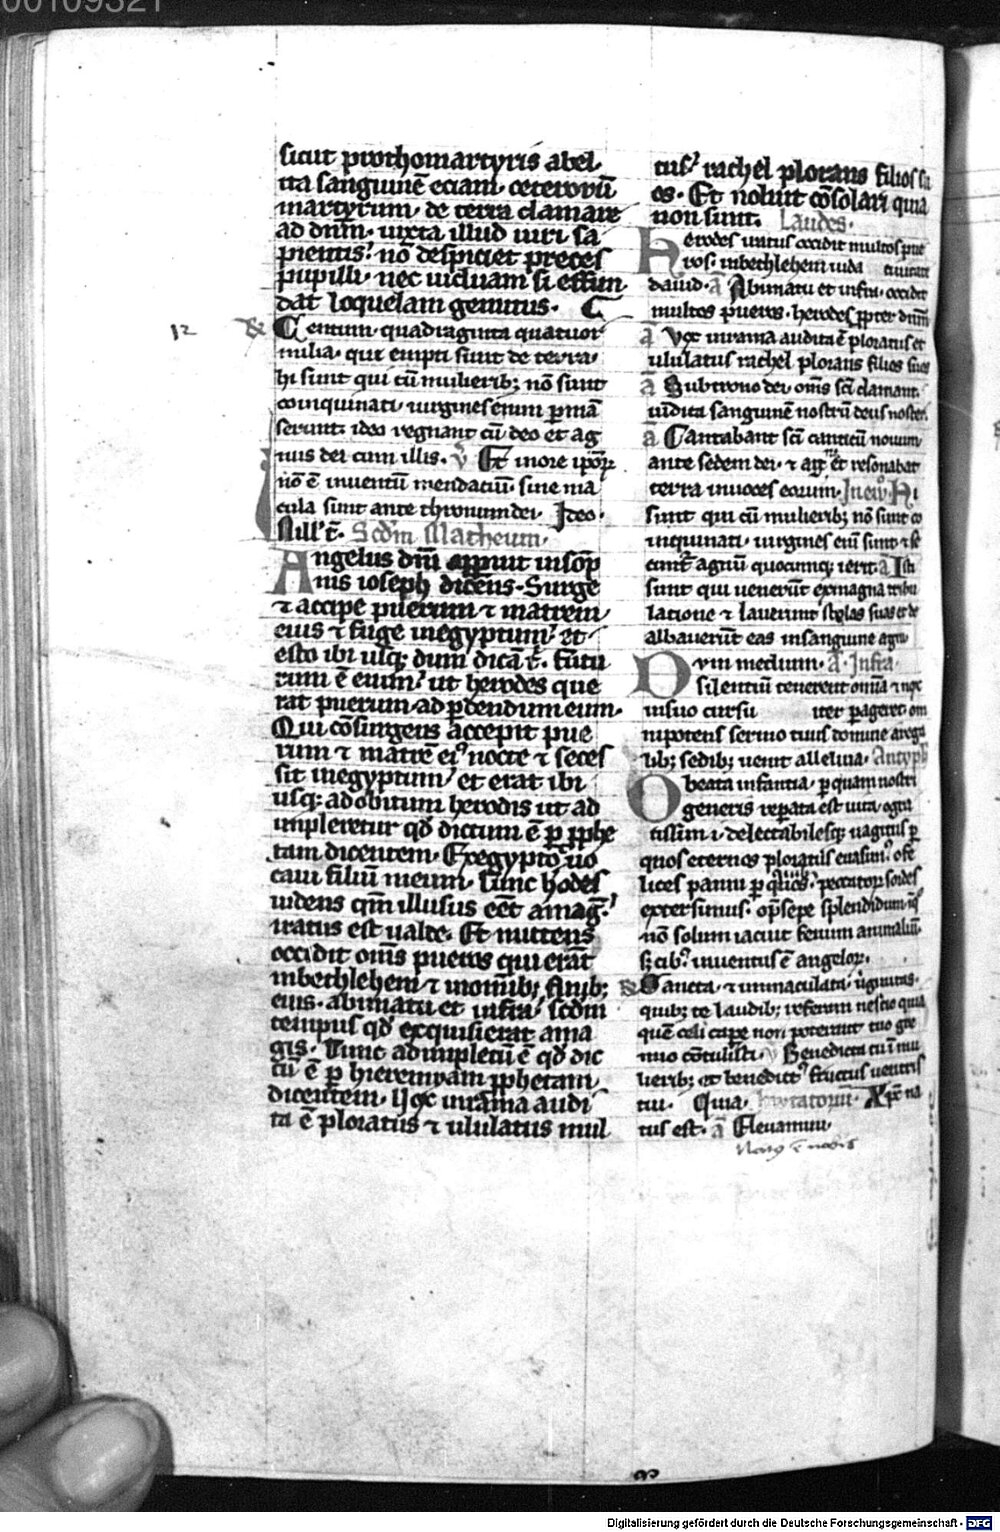 00109321
sicut prothomartyris abel·
ita sanguinē eciam· ceterorū
martyrum· de terra clamare
ad dn̄m· iuxta illud uiri sa
pientis· nō despiciet preces
pupilli· nec uiduam si effun
dat loquelam gemitus·
12
Centum· quadraginta quatuor
milia· qui empti sunt de terra·
hi sunt qui cū mulierib; nō sunt
coinquinati· uirgines enim p̄man
serunt· ideo regnant cū deo et ag
nus dei cum illis· v̄ Et in ore ip̄oꝝ
nō ē inuentū mendaciū· sine ma
cula sunt ante thronum dei· Ideo·
Scd̄m Matheum·
Angelus dn̄i apparuit in sōp
nis ioseph dicens· Surge
⁊ accipe puerum ⁊ matrem
eius ⁊ fuge in egyptum· et
esto ibi usq; dum dicā t̄· Futu
rum ē enim· ut herodes que
rat puerum ad p̄dendum eum·
Qui cōsurgens accepit pue
rum ⁊ matrē ei⁹ nocte ⁊ seces
sit in egyptum· et erat ibi
usq; ad obitum herodis ut ad
impleretur qd̄ dictum ē p̄ p̄phe
tam dicentem· Ex egypto uo
caui filiū meum· Tunc hodes
uidens qm̄ illusus eēt a maḡ·
iratus est ualde· Et mittens
occidit om̄s pueros qui erāt
in bethlehem ⁊ in om̄ib; finib;
eius· a bimatu et infra· scd̄m
tempus qd̄ exquisierat a ma
gis· Tunc adimpletū ē qd̄ dic
tū ē p̄ hieremyam p̄phetam
dicentem· Uox in rama audi
ta ē ploratus ⁊ ululatus mul
tus· rachel plorans filios su
os· Et noluit cōsolari quia
non sunt· Laudes·
Herodes iratus occidit multos pue
ros· in bethlehem iuda ciuitate
dauid· ā A bimatu et infra· occidit
multos pueros· herodes p̄pter dn̄m
ā Vox in rama audita ē ploratus et
ululatus rachel plorans filios suos
ā Sub trono dei· om̄s sc̄i clamant·
uindica sanguinē nostrū deus noster·
ā Cantabant sc̄i canticū nouum
ante sedem dei· ⁊ agni et resonabat
terra in uoces eorum· In eu̅· Hi
sunt qui cū mulierib; nō sunt co
inquinati· uirgines eni sunt ⁊ se
cunt̄ agnū quocumq; ierit· ā Isti
sunt qui uenerūt ex magna tribu
lacione ⁊ lauerunt stolas suas et de
albauerūt eas in sanguine agni
Dvm medium· ā· Infra·
silentiū tenerent omnia ⁊ nox
in suo cursu iter p̄ageret om
nipotens sermo tuus domine a rega
lib; sedib; uenit alleluia· Antyph
O beata infantia· p̄ quam nostri
generis reparata est uita· o gra
tissimi· delectabilesq; uagitus p̄
quos eternos ploratus euasim⁹· o fe
lices panni p̄ quos· peccatoꝝ sordes
extersimus· o p̄sepe splendidum· in q̄
nō solum iacuit fenum animaliū·
s; cib⁹ inuentus ē angeloꝝ·
Sancta· ⁊ immaculata· uirginitas·
quib; te laudib; referam nescio quia
quē celi cape non poterant tuo gre
mio cōtulisti· v̄ Benedicta tu ī mu
lierib; et benedict⁹ fructus uentris
tui· Quia· Inuitatoriū· Xpc̄ na
tus est· ā Eleuamini·
Natus ē nobis
Digitalisierung gefördert durch die Deutsche Forschungsgemeinschaft - DFG